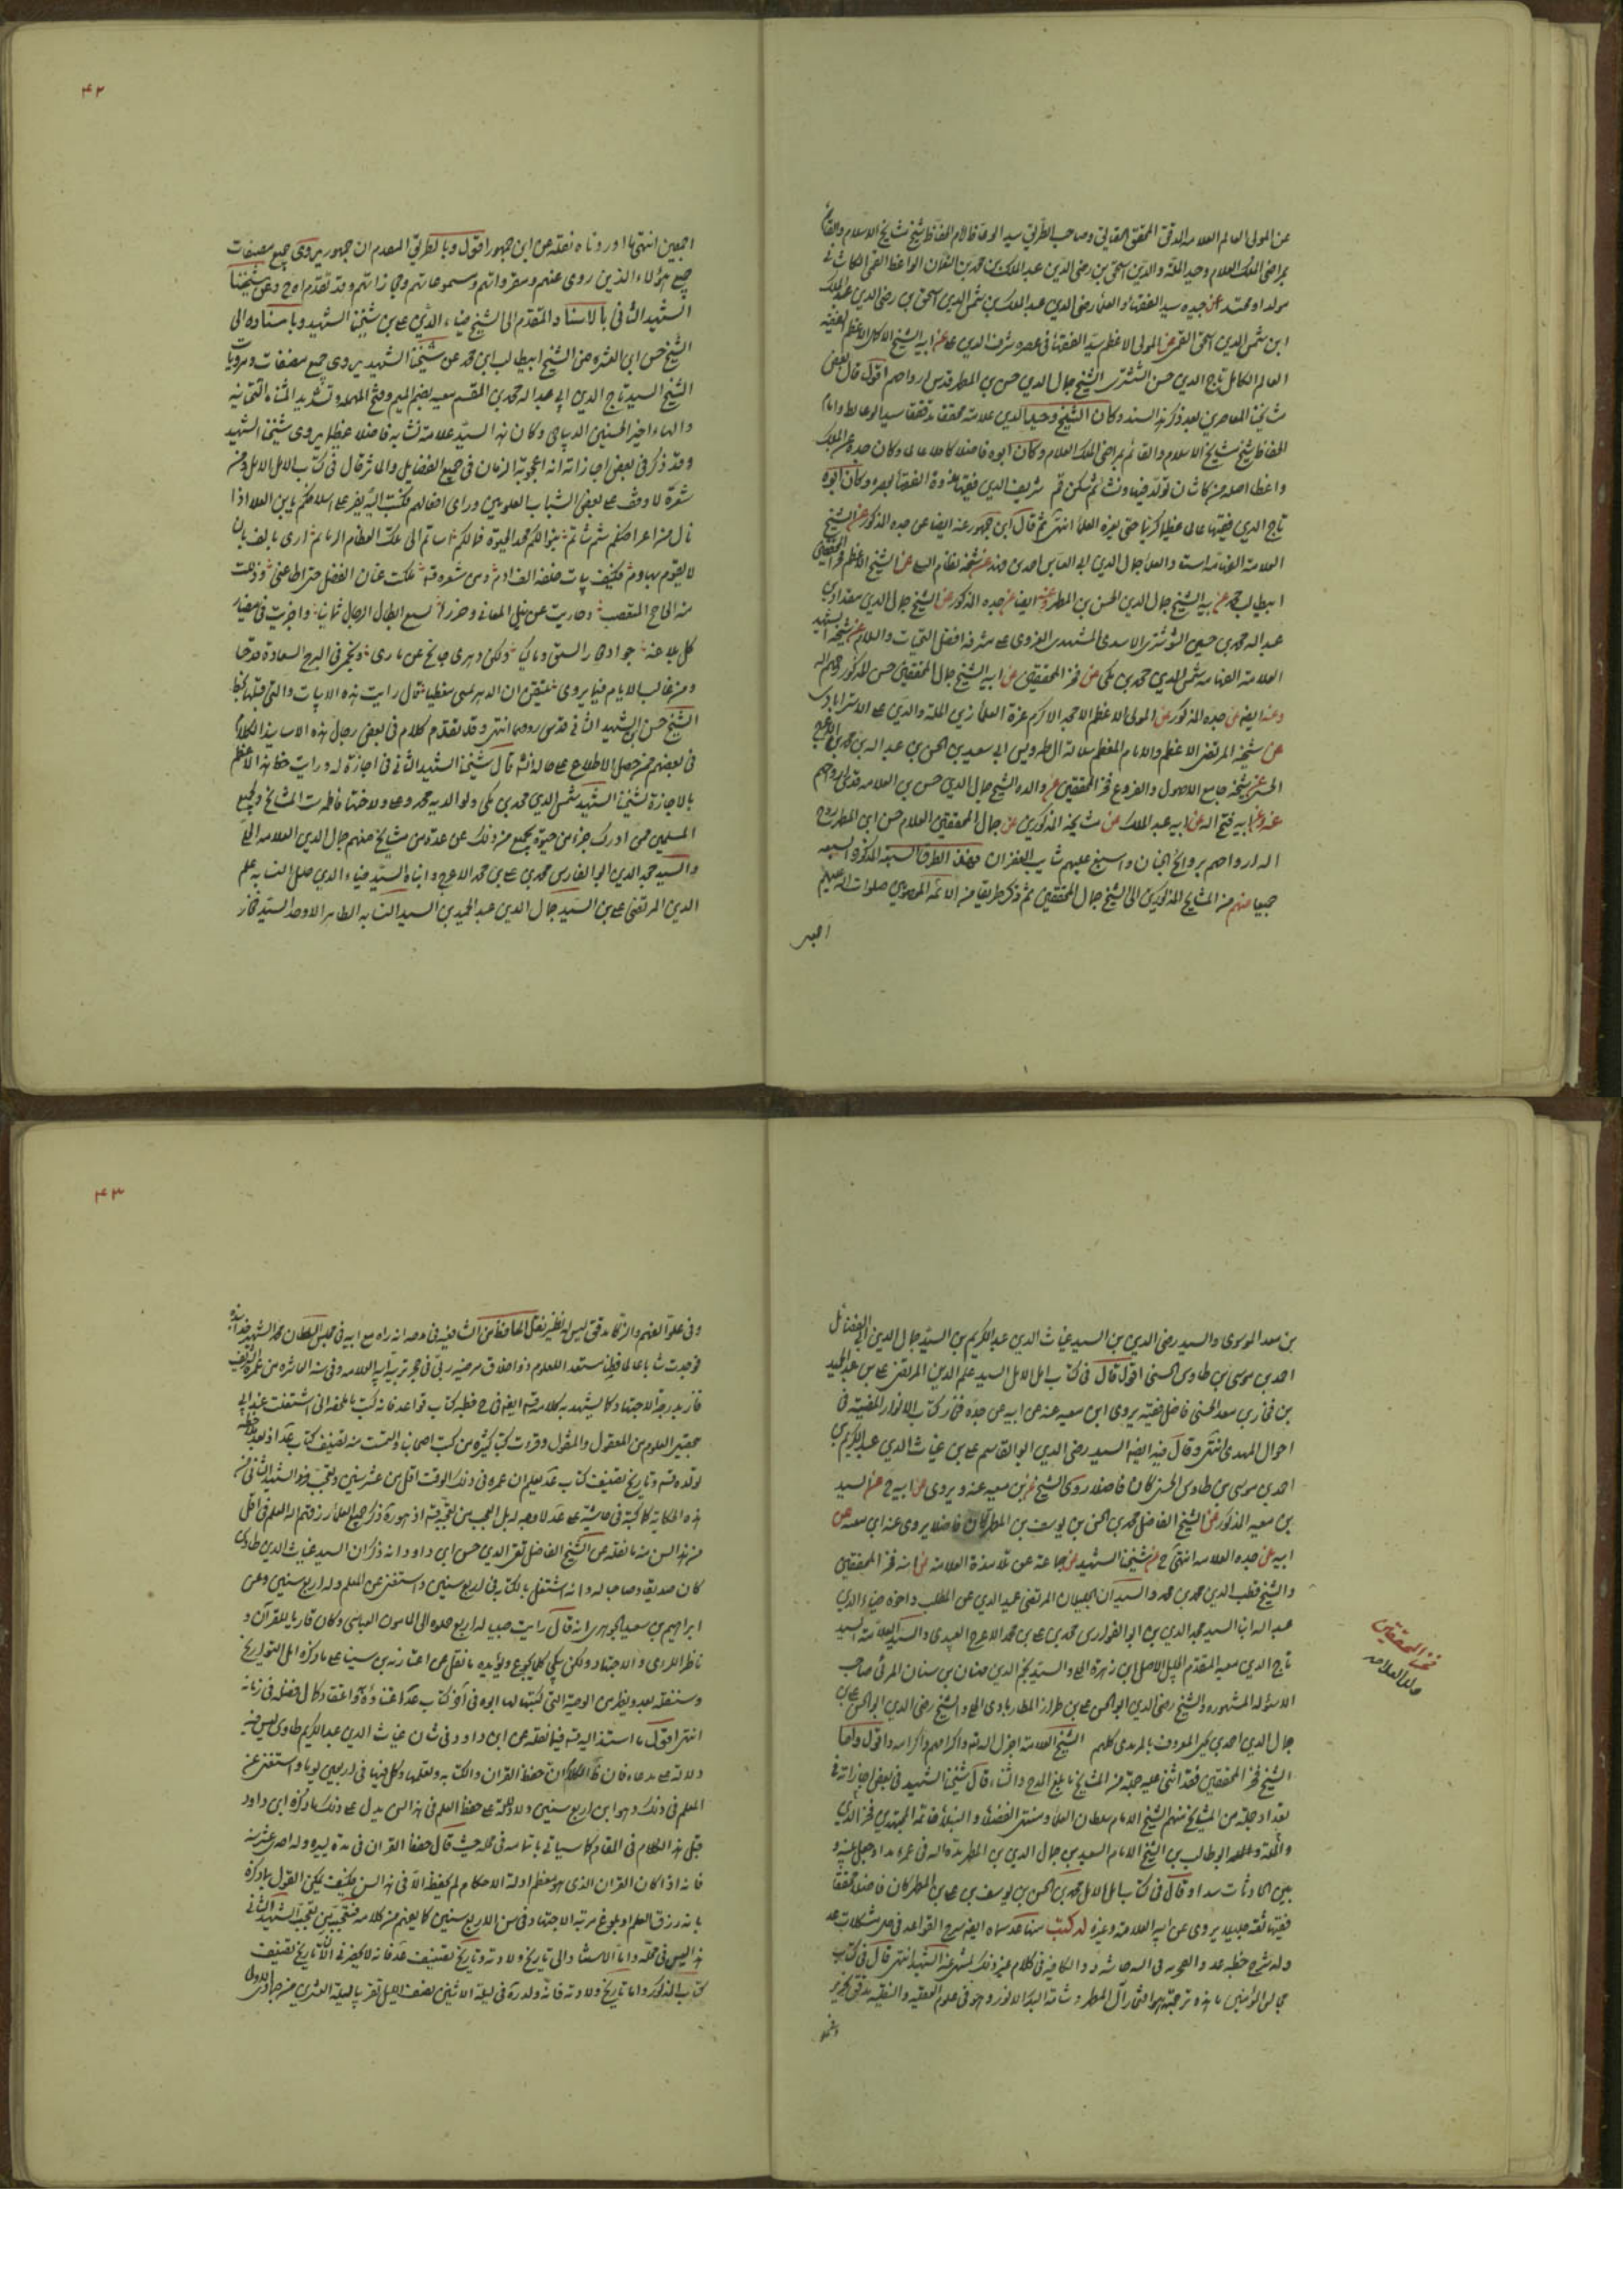 عن المولى العالم العلامة المدقق المحقق الحقاني وصاحب الطريق سيد الوعاظ والام الحفاظ شيخ مشايخ الاسلام والقائم
بمراضي الملك العلام وحيد الملة والدين اسحق بن رضي الدين عبد الملك بن محمد بن الفلان الواعظ القمي الكاشاني
مولدا ومحتدا عن جده سيد الفقهاء والعلماء رضي الدين عبد الملك بن شمس الدين اسحق بن رضي الدين عبد الملك
ابن شمس الدين اسحق القمي عن المولى الاعظم سيد الفقهاء في عصره شرف الدين علي عن ابيه الشيخ الاكمل الاعظم الفقيه
العالم الكامل تاج الدين حسن الششتري الشيخ جمال الدين حسن بن المطهر قدس ارواحهم اقول قال بعض
مشايخنا المعاصرين بعد ذكر هذا السند وكان الشيخ وحيد الدين علامة محققا مدققا سيد الوعاظ واماما
الحفاظ شيخ مشايخ الاسلام والقائم بمراضي الملك العلام وكان ابوه فاضلا كاملا عالما وكان جده عبد الملك
واعظا اصله من كاشان تولد فيها ونشأ ثم سكن قم شريف الدين فقيها قدوة الفقهاء بعصره وكان ابوه
تاج الدين فقيها عالما عظيما كريما حتى بعزه العلماء انتهى ثم قال ابن جمهور عنه ايضا عن جده المذكور عن الشيخ
العلامة جمال الدين ابي العباس احمد بن فهد عن شيخه نظام الدين عن الشيخ الاعظم فخر المحققين
ابي طالب محمد عن ابيه الشيخ جمال الدين الحسن بن المطهر وعنه ايضا عن جده المذكور عن الشيخ جمال الدين مقداد بن
عبد الله بن محمد بن حسين الششتري الاسدي المشهدي الغروي على مشرفه افضل التحيات والسلام عن شيخه الشهيد
العلامة الفهامة شمس الدين محمد بن مكي عن فخر المحققين عن ابيه الشيخ جمال المحققين حسن المذكور رحمهم الله
وعنه ايضا عن جده المذكور عن المولى الاعظم الامجد الاكرم غرة العلماء زين الملة والدين علي الاسترابادي
عن شيخه المرتضى الاعظم والامام المعظم سلالة ال طه ويس ابي سعيد بن الحسن بن عبد الله بن محمد بن الاعرج
الحسيني عن شيخه جامع الاصول والفروع فخر المحققين عن والده الشيخ جمال الدين حسن بن العلامه قدس ارواحهم
عنه وعن ابيه فتح الله عن ابيه عبد الملك عن مشايخه المذكورين عن جمال المحققين العلام حسن ابن المطهر روح
الله ارواحهم بروائح الجنان واسبغ عليهم شآبيب الغفران فهذه الطرق السبعة المذكورة السبعه
جميعا منهم من المشايخ المذكورين الى الشيخ جمال المحققين ثم ذكر طريقا من الائمة المعصومين صلوات الله عليهم
اجمعين
۴۲
اجمعين انتهى ما اوردناه نقله عن ابن جمهور اقول وبالطريق المتقدم ابن جمهور يروي جميع مصنفات
جميع هؤلاء الذين روى عنهم ومقرواتهم ومسموعاتهم ومجازاتهم وقد تقدم اوح وعن شيخنا
الشهيد الثاني بالاسناد المتقدم الى الشيخ ضياء الدين علي بن شيخنا الشهيد وباسناده الى
الشيخ حسن ابن العشره عن الشيخ ابي طالب ابن محمد عن شيخنا الشهيد يروي جميع مصنفات ومرويات
الشيخ السيد تاج الدين ابي عبد الله محمد بن القسم معيه بضم الميم وفتح المهمله وتشديد المثناة التحتانية
والهاء اخيرا الحسني الديباجي وكان هذا السيد علامة نسابه فاضلا عظيما يروي شيخنا الشهيد
وقد ذكر في بعض اجازاته انه اعجوبة الزمان في جميع الفضايل والماثر قال في كتاب امل الامل ومن
شعره لما وقف على بعض انساب العلويين وراى افعالهم فكتب اليه يعز على اسلافكم يا بن العلا اذا
نال من اعراضكم شتم شاتم بنوا لكم مجد الحيوة فما لكم اساتم الى تلك العظام الرمائم ارى بالف بان
لا يقوم بهادم فكيف ببان خلفه الف هادم ومن شعره قده ملكت عنان الفضل حتى اطاعني وذللت
منه الجامح المتصعب وضاربت عن نيل المعالي وحوزها بسيفي ابطال الرجال ثانيا واجريت في مضمار
كل بلاغة جوادي راسبق ولكن دهري جامح عن مآربي ونجمي في البرج السعادة قد خبا
ومن غالب الايام فيما يروى تيقن ان الدهر يمسي مغلبا قال رايت هذه الابيات والتي قبلها بخط
الشيخ حسن ابن الشهيد الثاني قدس روحهما انتهى وقد تقدم كلام في بعض رجال هذه الاسانيد الكلام
في بعضهم ممن حصل الاطلاع على حاله قال شيخنا الشهيد الثاني في اجازة له ورايت خط هذا الاعظم
بالاجازة لشيخنا الشهيد شمس الدين محمد بن مكي ولوالديه محمد وعلي ولاختهما فاطمة ست المشايخ ولجميع
المسلمين ممن ادرك جزء من حيوته بجميع من ذلك عن عدة من مشايخ منهم جمال الدين العلامه الحلي
والسيد مجد الدين ابو الفوارس محمد بن علي بن محمد الاعرج وابناه السيد ضياء الدين النسابه علم
الدين المرتضى علي بن السيد جلال الدين عبد الحميد بن السيد النسابه الطاهر الاوحد السيد فخار
بن معد الموسوي والسيد رضي الدين بن السيد غياث الدين عبد الكريم بن السيد جمال الدين ابي الفضائل
احمد بن موسى بن طاوس الحسني اقول قال في كتاب امل الامل السيد علم الدين المرتضى علي بن عبد الحميد
بن فخار بن معد الحسيني فاضل فقيه يروي ابن معيه عنه عن ابيه عن جده فخار كتاب الانوار المضيئة في
احوال المهدي انتهى وقال فيه ايضا السيد رضي الدين ابو القاسم علي بن غياث الدين عبد الكريم بن
احمد بن موسى بن طاوس الحسني كان فاضلا روى الشيخ عن بن معيه عنه ويروي عن ابيه ح عن السيد
بن معيه المذكور عن الشيخ الفاضل محمد بن الحسن بن يوسف بن المطهر كان فاضلا يروي عنه ابن معيه عن
ابيه عن جده العلامه انتهى ح عن شيخنا الشهيد عن جماعة عن تلامذة العلامه عن ابنه فخر المحققين
والشيخ قطب الدين محمد بن محمد والسيدان الجليلان المرتضى عميد الدين عبد المطلب واخوه ضياء الدين
عبد الله ابنا السيد مجد الدين بن ابو الفوارس محمد بن علي بن محمد الاعرج العبيدي والسيد العلامة السيد
تاج الدين معيه المتقدم الجليل الاصل ابن زهرة الحلي والسيد نجم الدين مهنان بن سنان المدني صاحب
الاسؤله المشهوره والشيخ رضي الدين ابو الحسن علي بن طراز المطاربادي الحلي والشيخ رضي الدين ابو الحسن علي بن
جمال الدين احمد بن يحيى المعروف بالمزيدي كلهم الشيخ العلامه اجزل الله ثوابهم واكرامهم اقول واما
الشيخ فخر المحققين فقد اثنى عليه جملة من المشايخ بابلغ المدح والثناء قال شيخنا الشهيد في بعض اجازاته في
تعداد جملة من المشايخ منهم الشيخ الامام سلطان العلماء ومنتهى الفضلاء والنبلاء خاتمة المجتهدين فخر الدين
والملة ابو طالب بن الشيخ الامام السعيد بن جمال الدين بن المطهر مد الله في عمره مدا وجعل بينه و
بين الحادثات سدا وقال في كتاب امل الامل محمد بن الحسن بن يوسف بن علي بن المطهر كان فاضلا محققا
فقيها ثقة جليلا يروي عن ابيه العلامه وغيره له كتب منها شرح القواعد سماه ايضاح القواعد في حل مشكلات
وله شرح خطبة القواعد والفخرية في النية وحاشية الارشاد والكافيه في الكلام وغير ذلك الشهيد انتهى قال في كتاب
مجالس المؤمنين ما هذه ترجمته هو افتخار آل المطهر وشامة البدر الانور وهو في علوم العقلية والنقلية مدقق نحرير
فخر المحققين
ولد العلامه
۴۳
وفي علو الفهم والذكاء مدقق ليس له نظير نقل الحافظ من الشافعية في مدحه انه راه مع ابيه في مجلس السلطان محمد الشهير بخدابنده
فوجدت شابا عالما فطنا مستعدا للعلوم ذو اخلاق مرضيه ربي في حجر تربية ابيه العلامه وفي سنة العاشره من عمره الشريف
فاز بدرجة الاجتهاد كما يشهد به كلامه قده ايضا في شرح خطبة كتاب قواعد فانه كتب اشتغلت عند ابي
بتحصيل العلوم من المعقول والمنقول وقرات كتبا كثيره من كتب اصحابنا والتمست منه تصنيف كتاب قواعد
تولده قده وتاريخ تصنيف كتاب عد يعلم ان عمره في ذلك الوقت اقل من عشر سنين وتعجب الشهيد الثاني من
هذه الحكاية كما كتبه في حاشية على عد لا وجه له بل العجب من تعجبه قده اذ هو قد ذكر جميع العلماء رزقهم الله العلم في اقل
من هذا السن منه ما نقله عن الشيخ الفاضل تقي الدين حسن ابن داود انه ذكر ان السيد غياث الدين طاوس
كان صديقا وصاحبا له وانه اشتغل بالكتابة في اربع سنين واستغنى عن المعلم وله اربع سنين وعن
ابراهيم بن سعيد الجوهري انه قال رايت صبيا له اربع حملوه الى المامون العباسي وكان قاريا للقرآن و
ناظر الراى والاجتهاد ولكن يبكي كلما يجوع ويؤيده ما نقل عن ابن سينا على ما ذكره اهل التواريخ
وسننقله بعد ويظهر من الوصية التي كتبها ابوه في آخر كتاب عد اعتناؤه واعتقاد كمال فضله في زمانه
انتهى اقول ما استند اليه قده فيما نقله عن ابن داود في شان غياث الدين عبد الكريم طاوس ليس فيه
دلالة على مدعاه فان ظاهر الكلام ان حفظ القران والكتابة وتعلمها وكل فيها في اربعين يوما واستغنى عن
المعلم في ذلك وهو ابن اربع سنين ولا دلالة على حفظ العلم في هذا السن يدل على ذلك ما ذكره ابن داود
قبل هذا الكلام في المقام كما سياتي باتمامه في محله حيث قال حفظ القران في مدة يسيره وله احد عشر سنة
فانه اذا كان القران الذي هو معظم ادلة الاحكام لم يحفظه الا في هذا السن فكيف يمكن القول بما ذكره
بانه رزق العلم او بلوغ مرتبة الاجتهاد في سن الاربع سنين كما يفهم من كلامه فتعجبه من تعجب الشهيد الثاني
ليس في محله واما الاستناد الى تاريخ ولادته وتاريخ تصنيف عد فانه لا يحضرني الآن تاريخ تصنيف
كتاب المذكور واما تاريخ ولادته فانه ولد ره في ليلة الاثنين نصف الليل تقريبا ليلة العشرين من جمادى الاولى